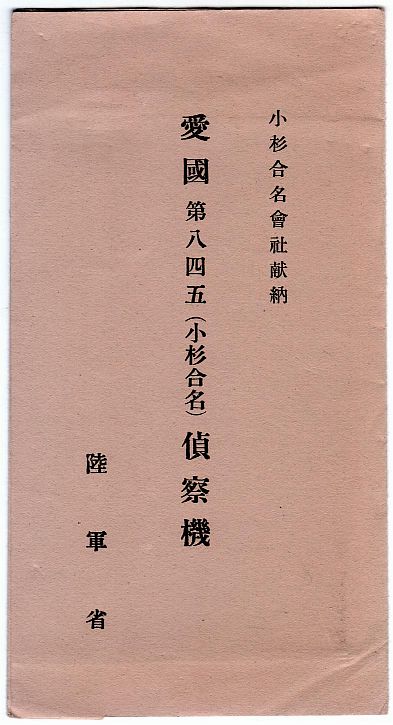 小杉合名會社献納
愛國第八四五(小杉合名)偵察機
陸軍省